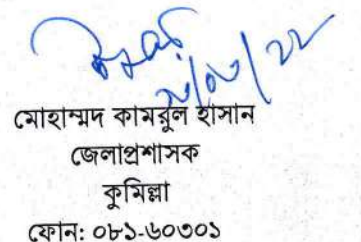 মোহাম্মদ কামরুল হাসান
জেলাপ্রশাসক
কুমিল্লা
ফোন: ০৮১-৬০৩০১